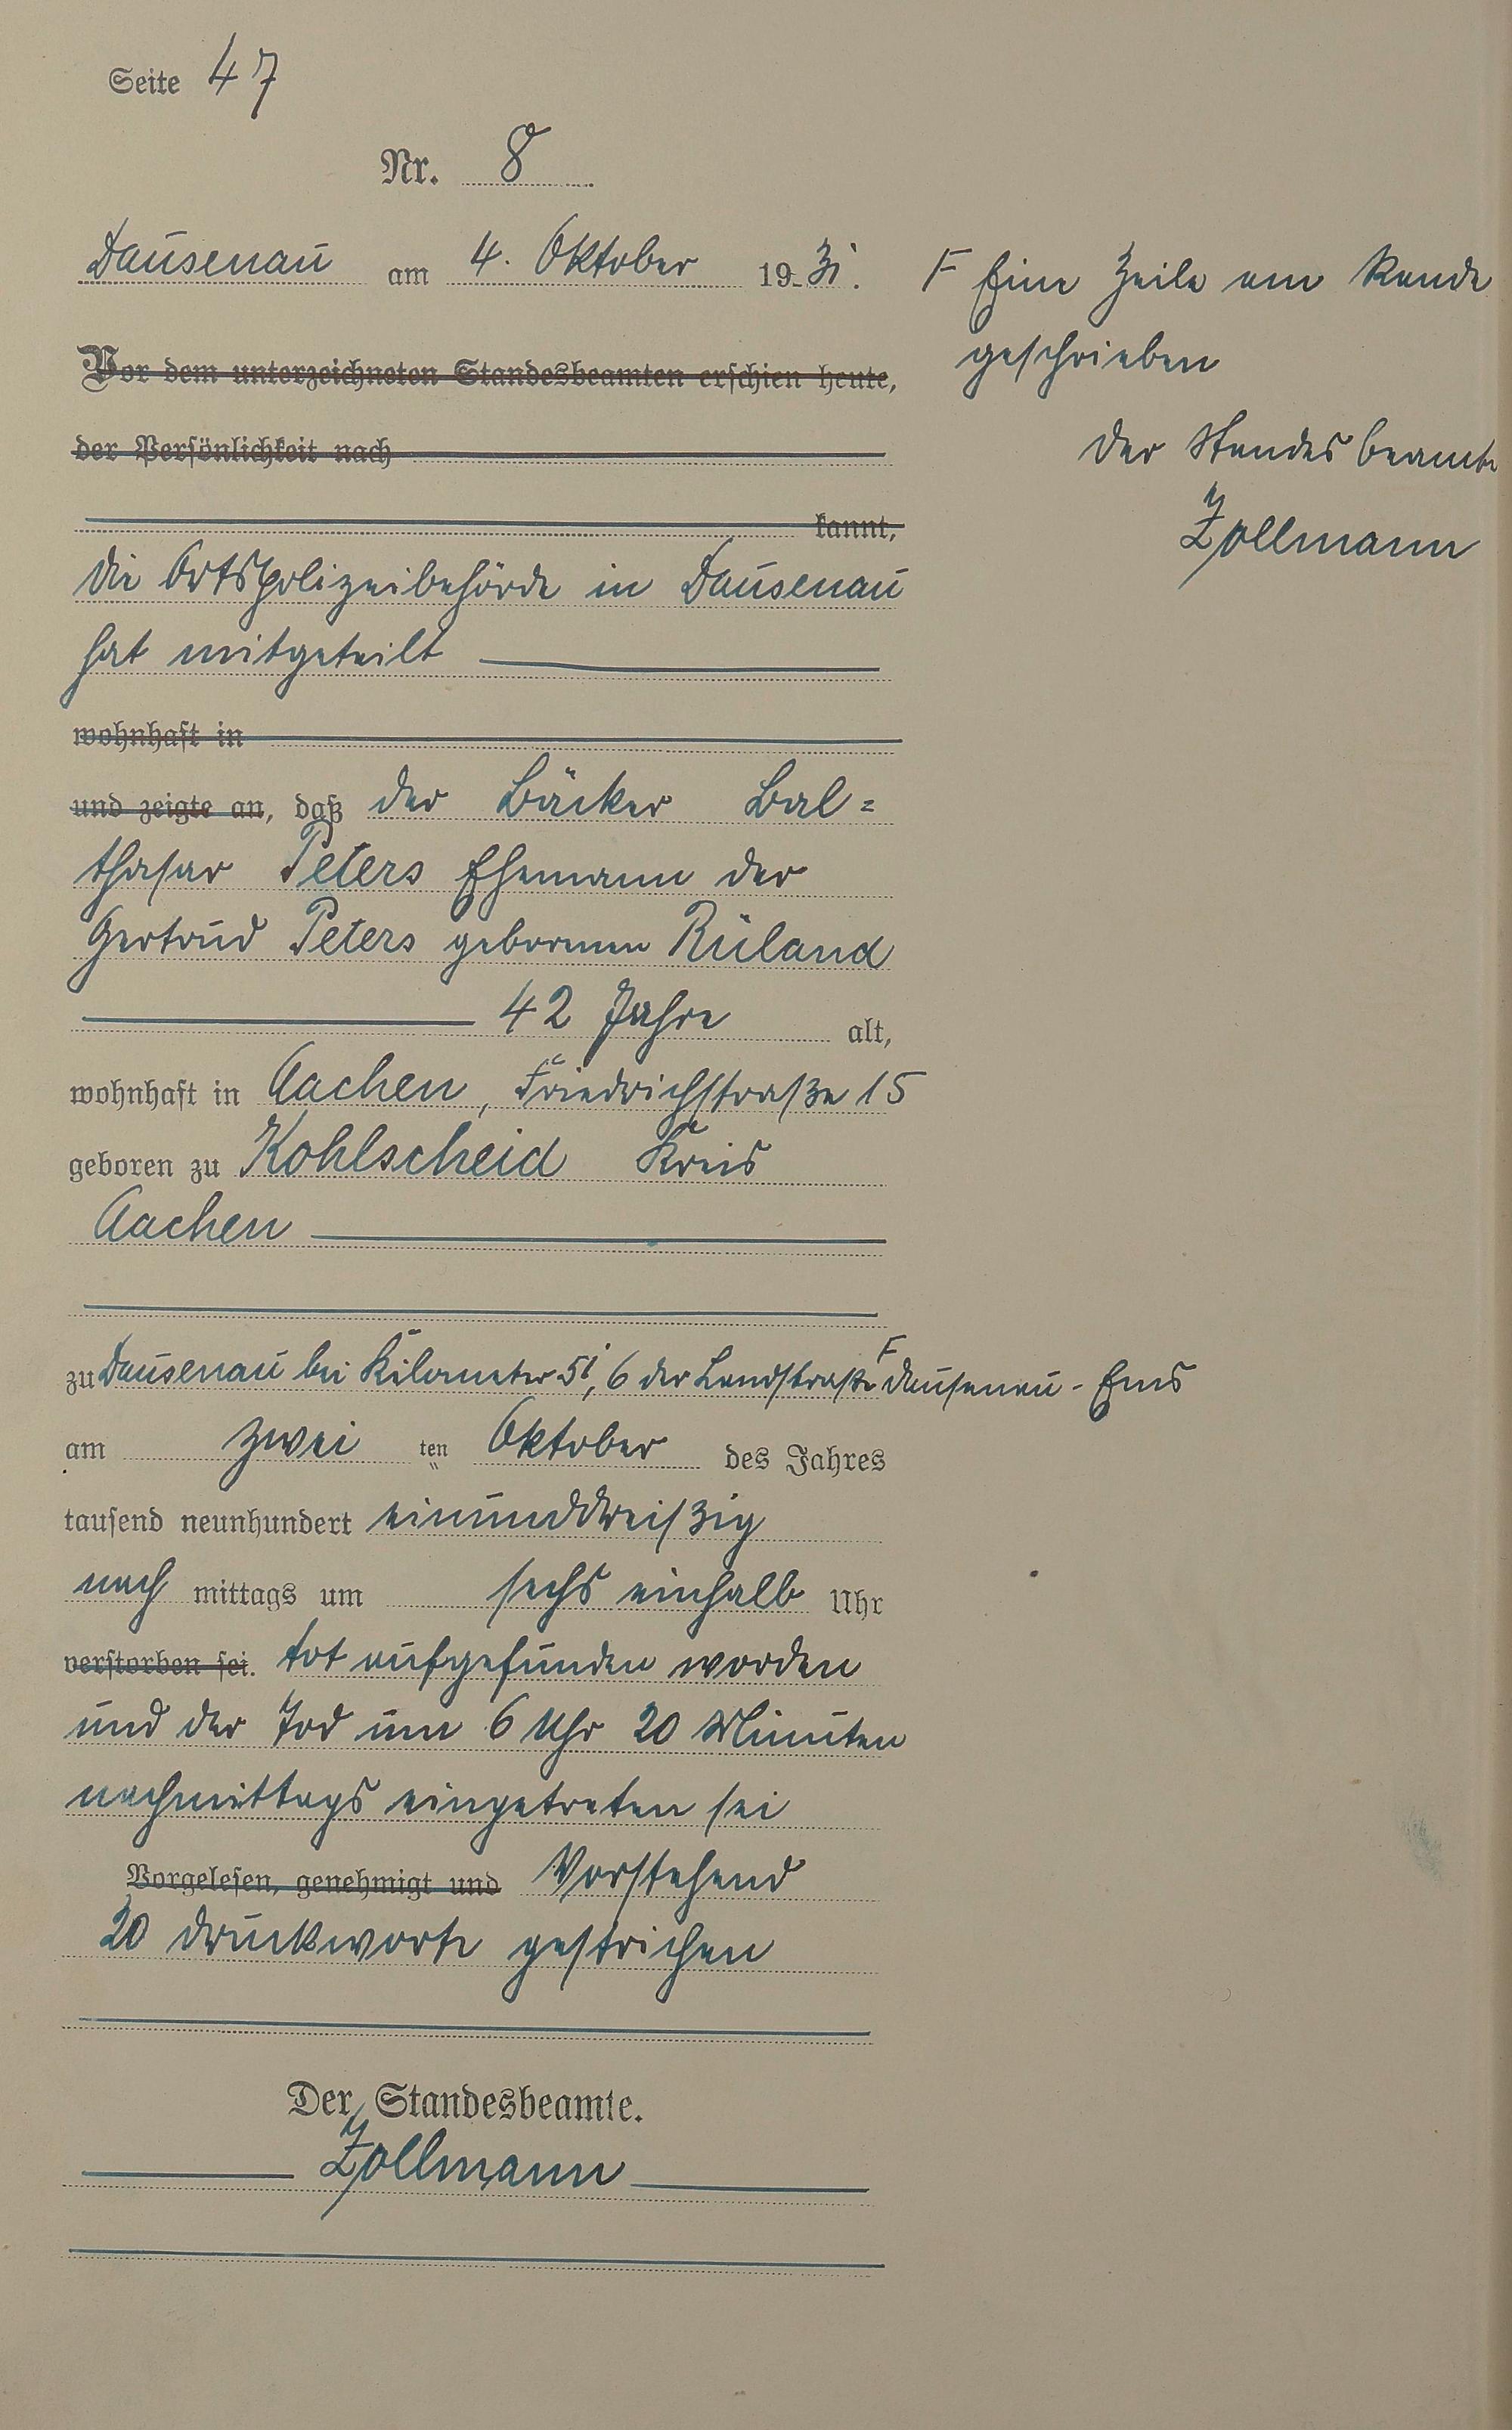 Seite 47
Nr. 8
Dausenau am 4. Oktober 1931.
Vor dem unterzeichneten Standesbeamten erschien heute,
der Persönlichkeit nach
kannt,
Die Ortspolizeibehörde in Dausenau
hat mitgeteilt
wohnhaft in
und zeigte an, daß der Bäcker Bal=
thasar Peters Ehemann der
Gertrud Peters geborenen Rüland
42 Jahre alt,
wohnhaft in Aachen, Friedrichstraße 15
geboren zu Kohlscheid Kreis
Aachen
zu Dausenau bei Kilometer 51,6 der Landstraße F Dausenau - Ems
am zwei ten Oktober des Jahres
tausend neunhundert einunddreißig
nach mittags um sechs einhalb Uhr
verstorben sei. tot aufgefunden worden
und der Tod um 6 Uhr 20 Minuten
nachmittags eingetreten sei
Vorgelesen, genehmigt und Vorstehend
20 Druckworte gestrichen
Der Standesbeamte.
Zollmann
F Eine Zeile am Rande
geschrieben
Der Standesbeamte
Zollmann